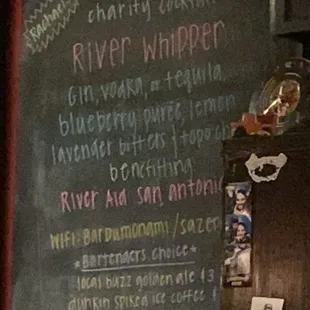 Rachael
charity cockta
River Whipper
Gin, vodka, or tequila,
blueberry purée, lemon
lavender bitters & topo ch
benefitting
River Aid San Antonio
WiFi: Bardumonami/sazer
*Bartenders choice*
local buzz golden ale $3
dunkin spiked ice coffee